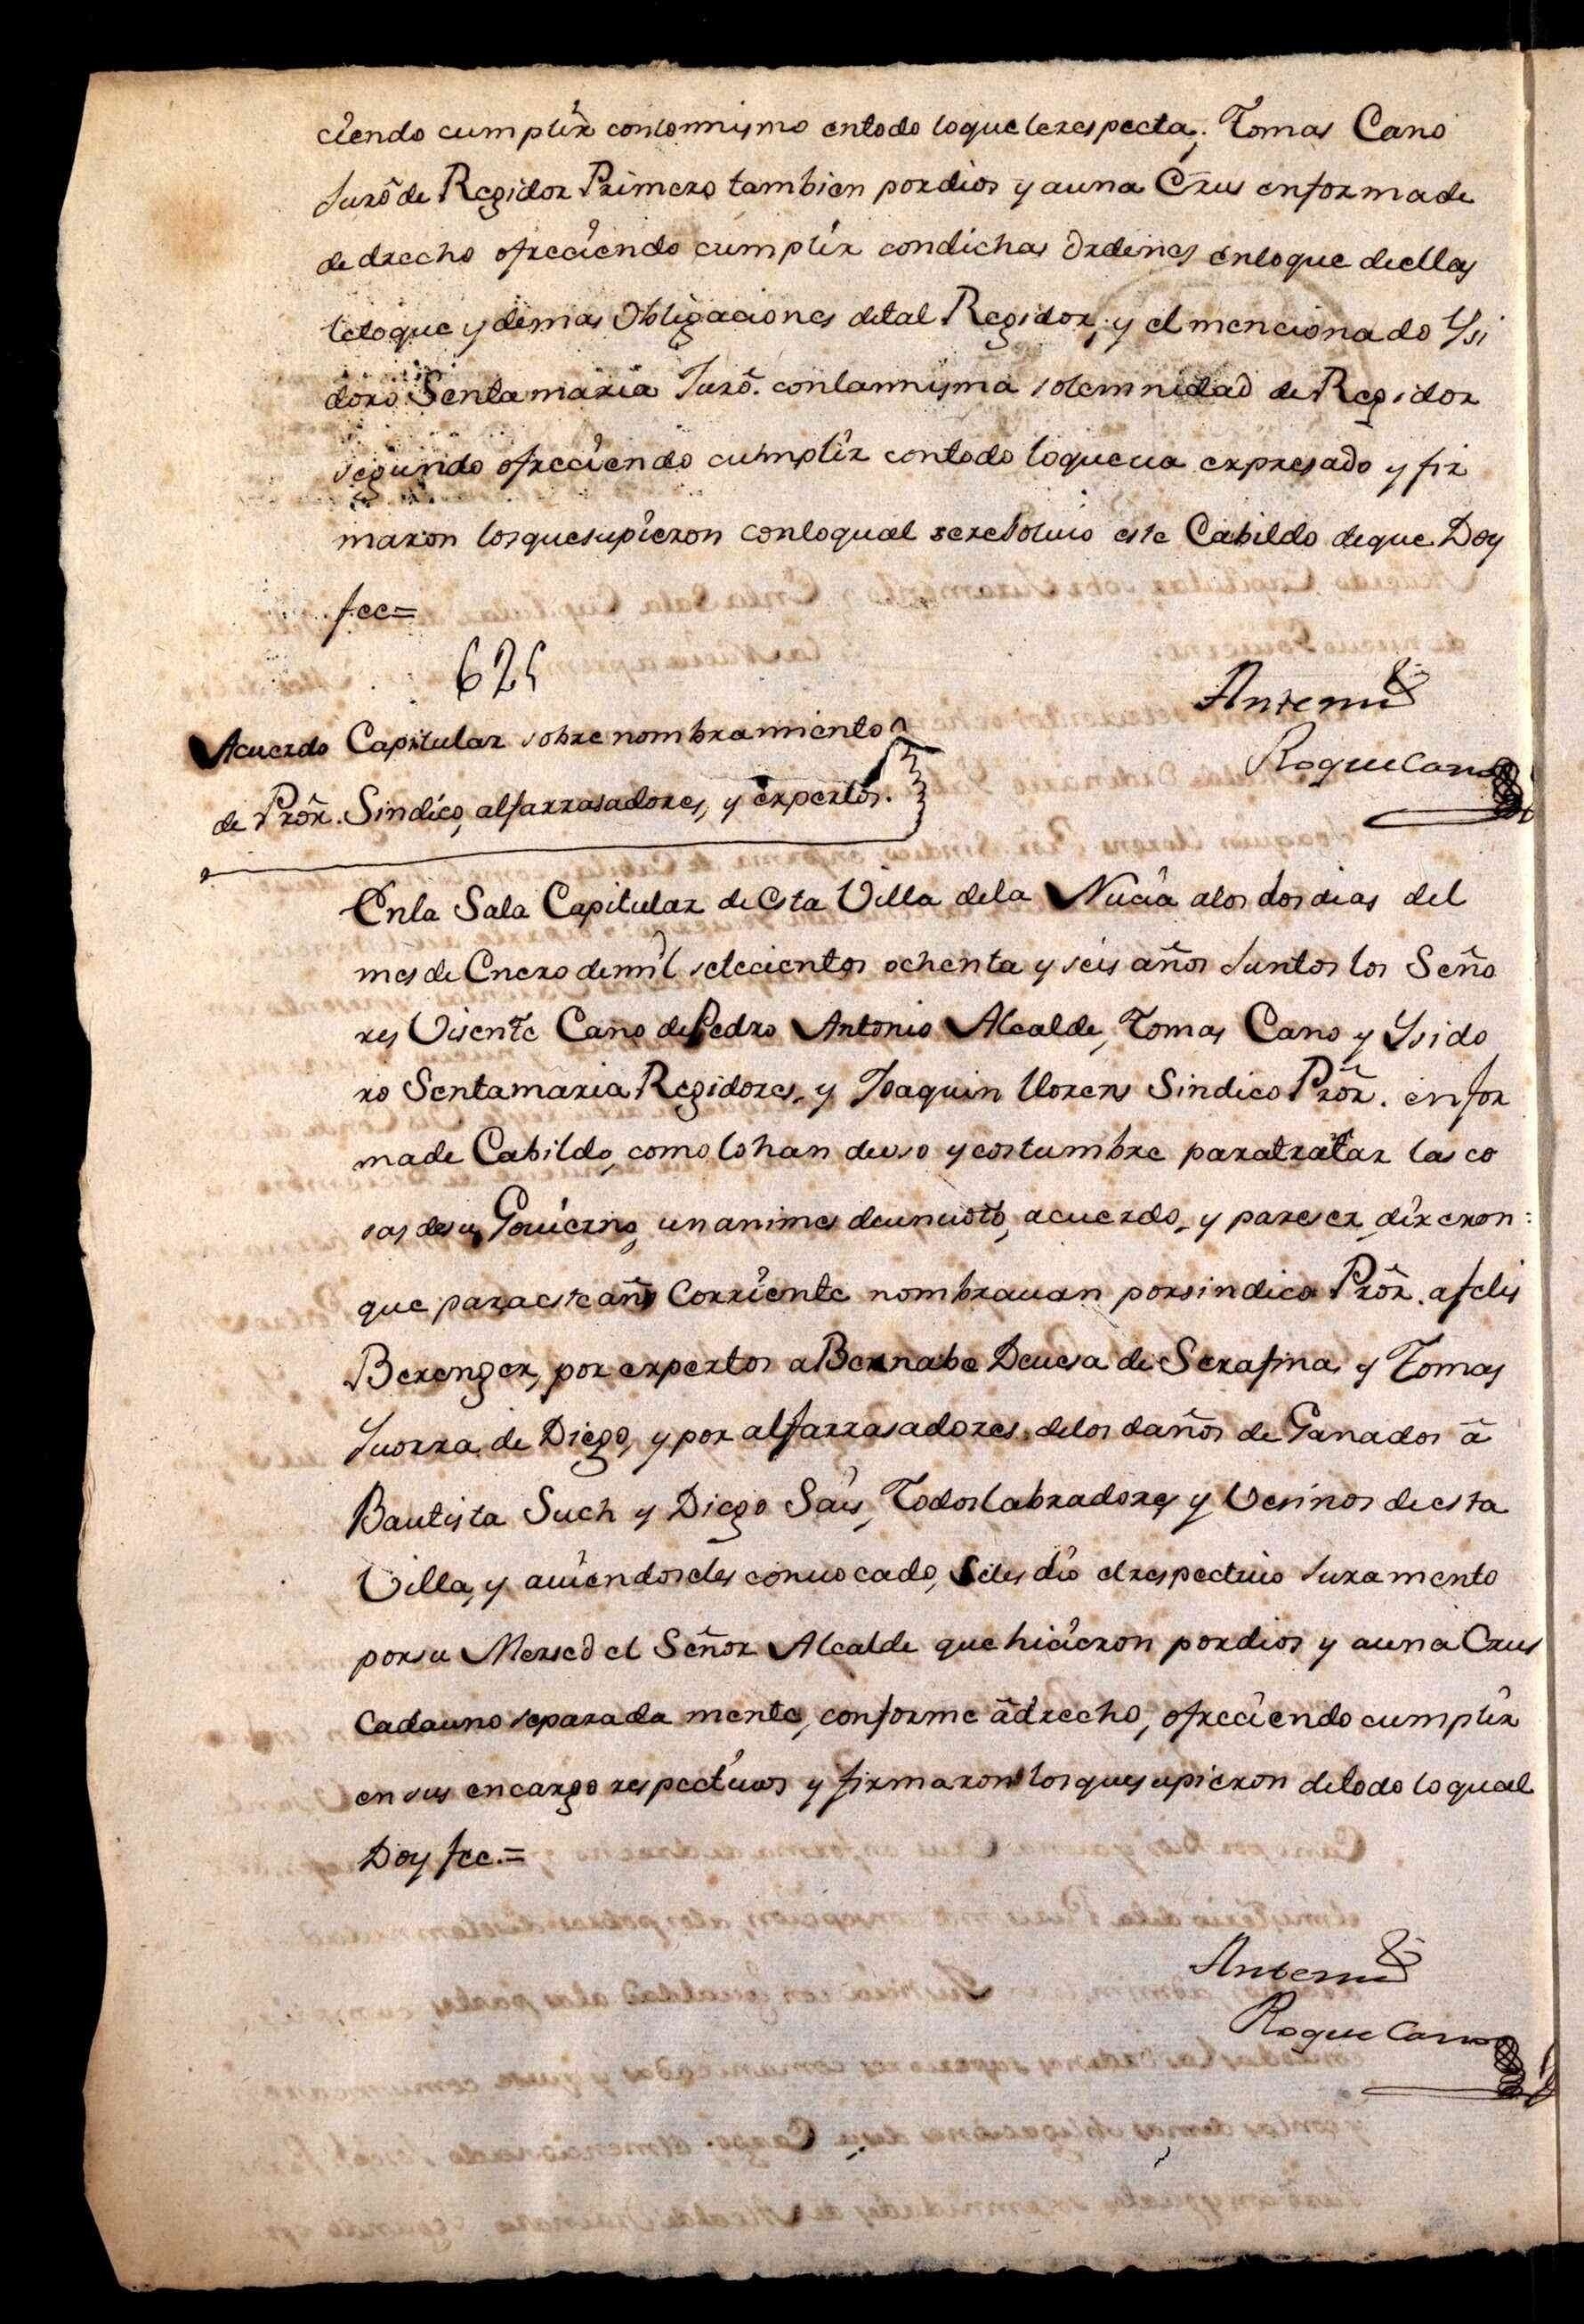 ciendo cumplir con lo mismo en todo lo que le respecta; Tomas Cano
Juró de Regidor Primero tambien por dios y a una Crus en forma de
de drecho ofreciendo cumplir con dichas Ordenes en lo que de ellas
le toque y demas Obligaciones de tal Regidor; y el mencionado Ysi
doro Sentamaria Juró. con la misma solemnidad de Regidor
segundo ofreciendo cumplir con todo lo que va expresado y fir
maron los que supieron con lo qual se resolvio este Cabildo de que Doy
fee=
625
Antemi
Roque Cano
Acuerdo Capitular sobre nombramiento
de Prõr. Sindico, alfarrasadores, y expertos.
En la Sala Capitular de Esta Villa de la Nucia a los dos dias del
mes de Enero de mil setecientos ochenta y seis años Juntos los Seño
res Visente Cano de Pedro Antonio Alcalde, Tomas Cano y Ysido
ro Sentamaria Regidores, y Joaquin Llorens Sindico Prõr. en for
ma de Cabildo, como lo han de uso y costumbre para tratar las co
sas de su Govierno, unanimes de un voto, acuerdo, y pareser, dixeron:
que para este año Corriente nombravan por sindico Prõr. a felis
Berenger, por expertos a Bernabe Devesa de Serafina y Tomas
Yvorra de Diego, y por alfarrasadores de los daños de Ganados ã
Bautista Such y Diego Sais, Todos labradores y Vesinos de esta
Villa, y aviendoseles convocado, se les dio el respectivo Juramento
por su Mersed el Señor Alcalde que hicieron por dios y a una Crus
Cada uno separada mente, conforme ã drecho, ofreciendo cumplir
en sus encargo respectivos y firmaron los que supieron de todo lo qual
Doy fee.=
Antemi
Roque Cano